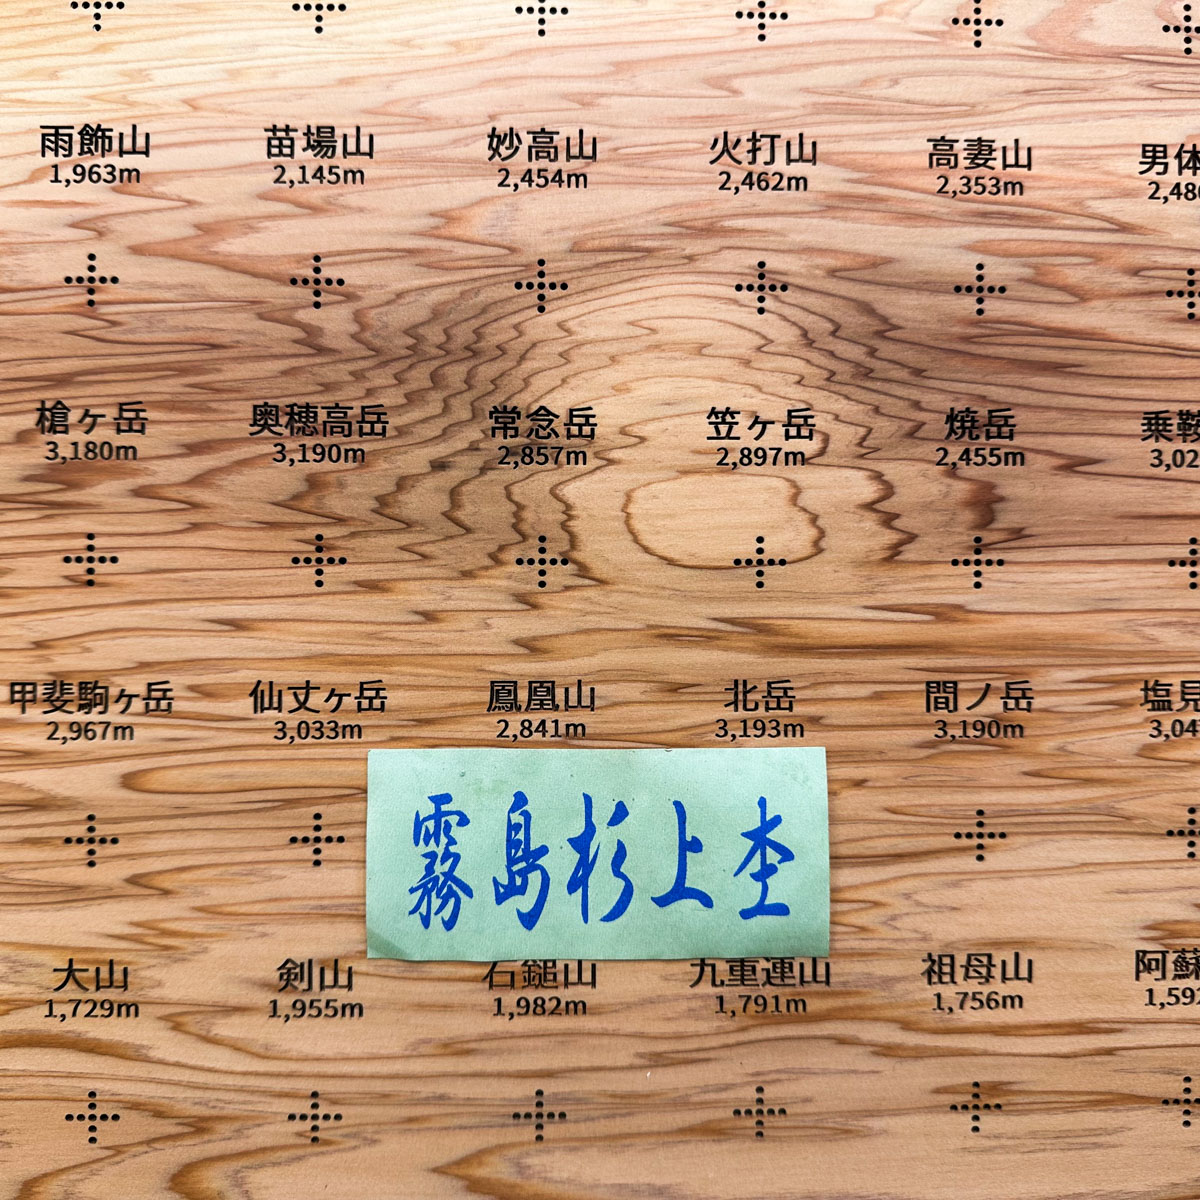 雨飾山 苗場山 妙高山 火打山 高妻山 男体
1,963m 2,145m 2,454m 2,462m 2,353m 2,48
槍ヶ岳 奥穂高岳 常念岳 笠ヶ岳 焼岳 乗鞍
3,180m 3,190m 2,857m 2,897m 2,455m 3,02
甲斐駒ヶ岳 仙丈ヶ岳 鳳凰山 北岳 間ノ岳 塩見
2,967m 3,033m 2,841m 3,193m 3,190m 3,04
霧島杉上杢
大山 剣山 石鎚山 九重連山 祖母山 阿蘇
1,729m 1,955m 1,982m 1,791m 1,756m 1,59